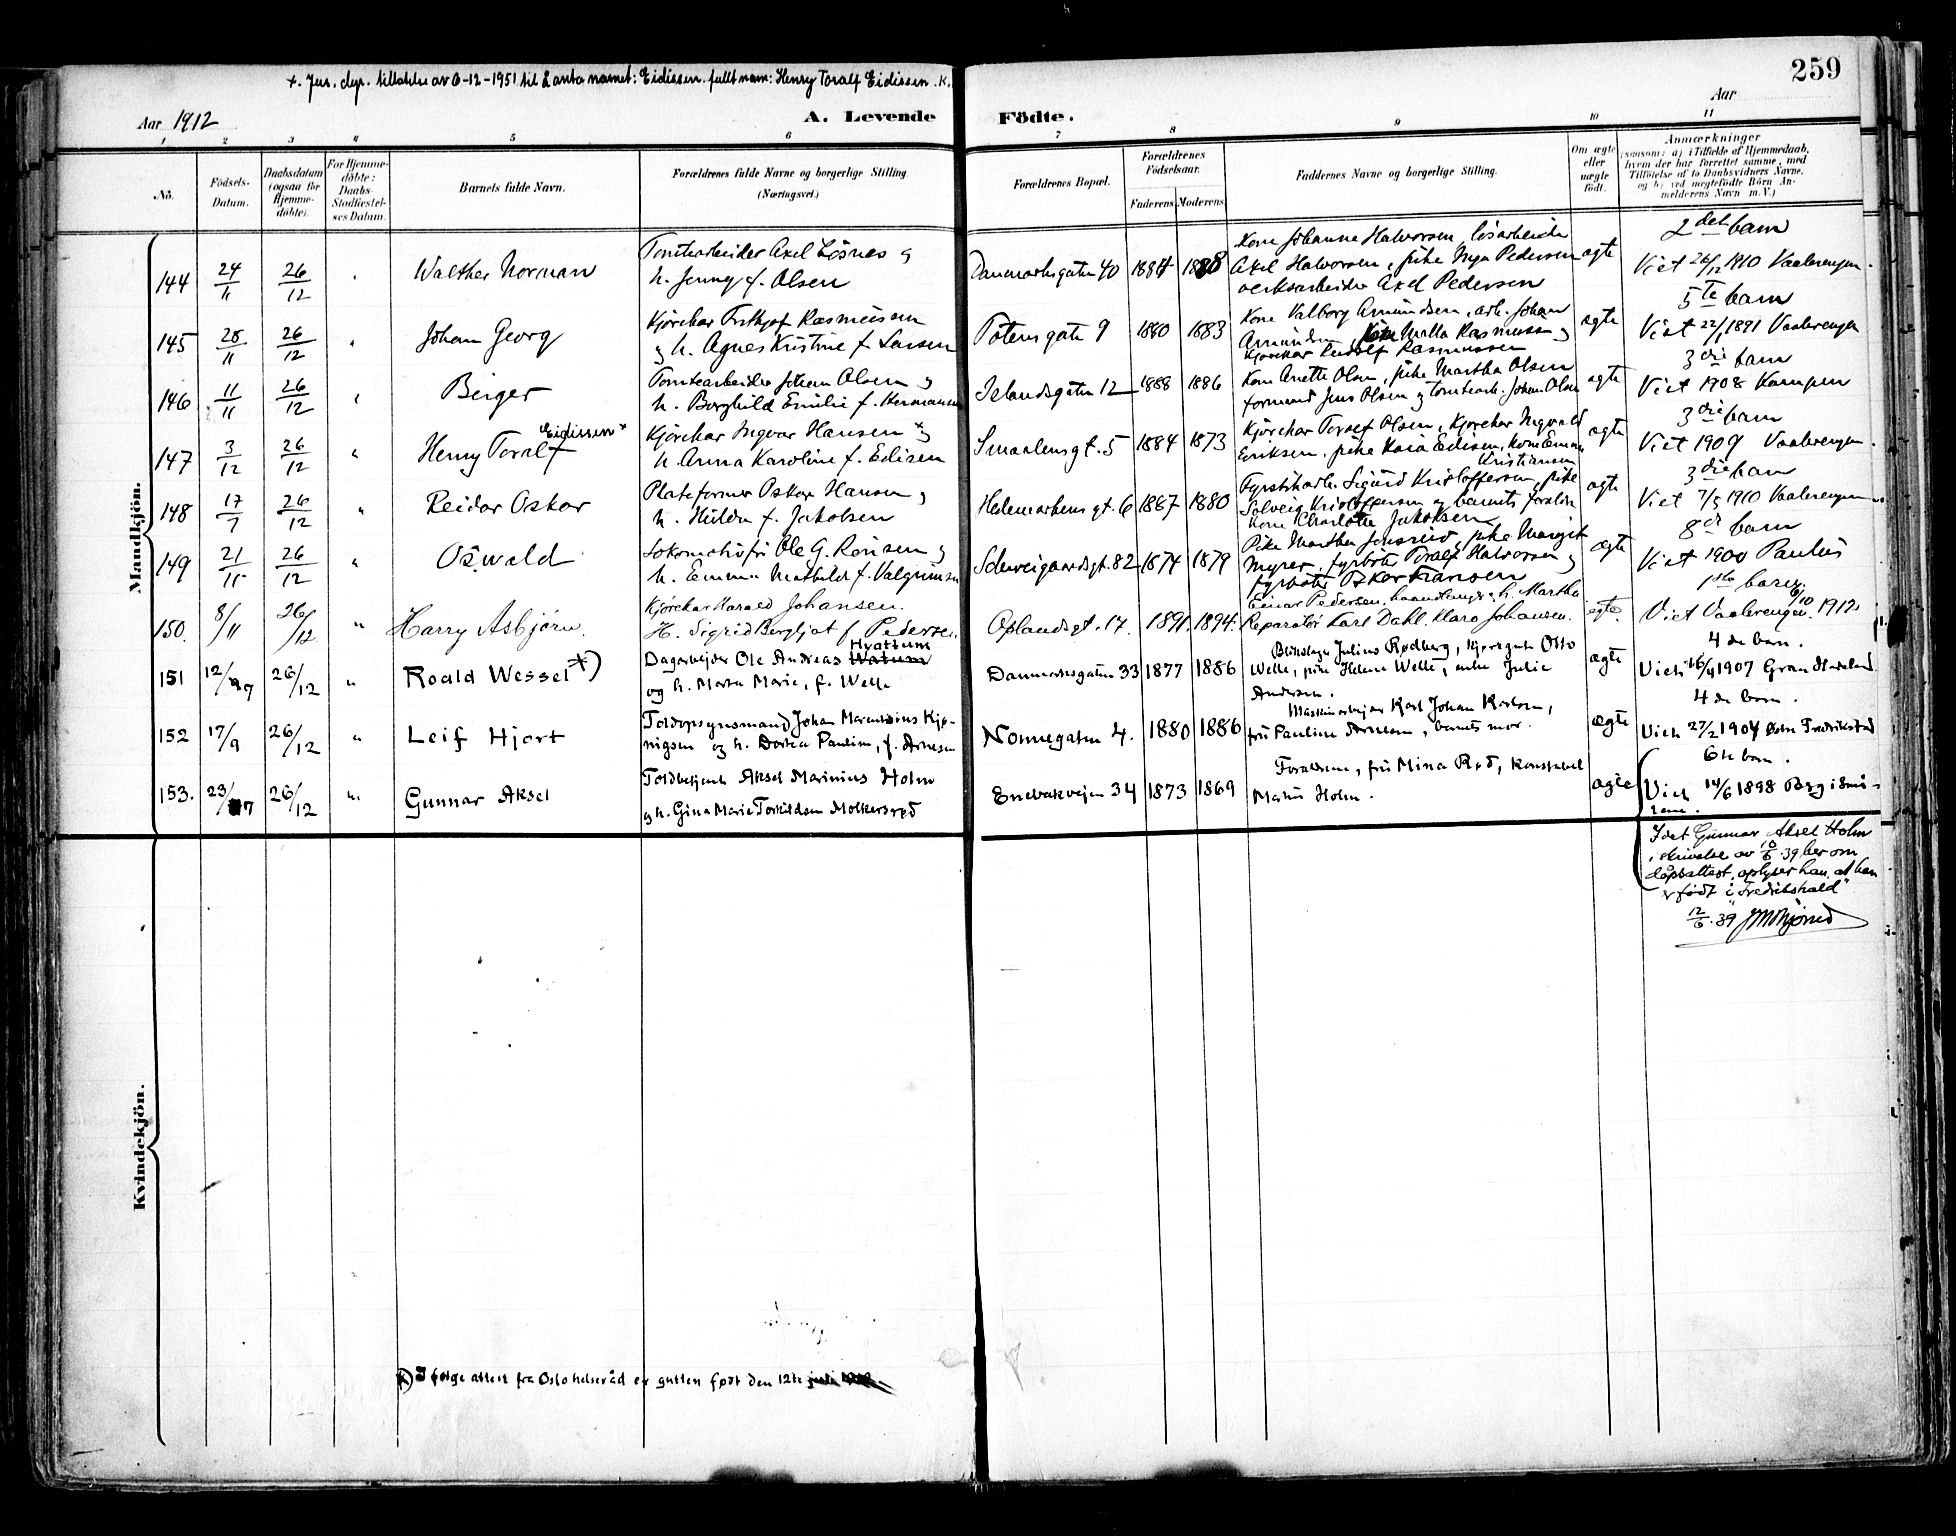 259
+. Jus. dep. tillatelse av 6-12-1951 til å anta namet: Eidissen. fullt nam: Henry Toralf Eidissen. K.
Aar 1912
A. Levende Födte.
Aar
1 2 3 4 5 6 7 8 9 10 11
No.
Födsels-Datum.
Daabsdatum (ogsaa for Hjemme-döbte).
For Hjemme-döbte: Daabs-Stadfæstel-ses Datum.
Barnets fulde Navn.
Forældrenes fulde Navne og borgerlige Stilling. (Næringsvei.)
Forældrenes Bopæl.
Forældrenes Födselsaar.
Faderens Moderens
Faddernes Navne og borgerlige Stilling.
Om ægte eller uægte födt.
Anmærkninger
(saasom: a) i Tilfælde af Hjemmedaab, hvem der har forrettet samme, med Tilföielse af to Daabsvidners Navne, og b) ved uægtefödte Börn An-melderens Navn m. V.)
Mandkjön.
144 24/11 26/12 " Walther Norman
Tomtearbeider Axel Løsnes og
h. Jenny f. Olsen
Danmarksgaten 40 1884 1888
Kone Johanne Halvorsen, løsarbeider
Axel Halvorsen, pike Mya Pedersen
verksarbeider Axel Pedersen
ægte
2det barn
Viet 26/12 1910 Vaalerengen.
145 28/11 26/12 " Johan Georg
Kjørekar Fritjof Rasmussen
og h. Agnes Kristine f. Larsen
Totensgate 9 1880 1883
Kone Valborg Amundsen, arb. Johan
Amundsen, Kone Malla Rasmussen og
Kjørekar Rudolf Rasmussen
ægte
5te barn
Viet 22/1 1891 Vaalerengen
146 11/11 26/12 " Birger
Tomtearbeider Johan Olsen og
h. Borghild Emilie f. Hermansen
Islandsgaten 12 1888 1886
Kone Anette Olsen, pike Martha Olsen
formand Jens Olsen og tomtearb. Johan Olsen
ægte
3die barn
Viet 1908 Kampen
147 3/12 26/12 " Henry Toralf Eidissen +
Kjørekar Ingvar Hansen + og
h. Anna Karoline f. Edisen
Smaalensgt. 5 1884 1873
Kjørekar Torsef Olsen, Kjørekar Ingvald
Eriksen, pike Kaia Edisen, kone Emma
Kristiansen
ægte
3die barn
Viet 1909 Vaalerengen.
148 17/7 26/12 " Reidar Oskar
Plateformer Oskar Hansen og
h. Hilda f. Jakobsen
Hedemarkens gt. 6 1887 1880
Fyrstikarb. Sigurd Kristoffersen, pike
Solveig Kristoffersen og barnets foreldre
Kone Charlotte Jakobsen
ægte
3die barn
Viet 7/5 1910 Vaalerengen
149 21/11 26/12 " Oswald
Lokomotivfør Ole G. Rønsen og
h. Emma Mathilde f. Valgrimsen
Schweigaardsgt. 82 1874 1879
Pike Martha , pike Margit
Myrer, fyrbøter Toralf Halvorsen og
fyrbøter Oskar Hansen
ægte
8de barn
Viet 1900 Paulus
150. 8/11 26/12 " Harry Asbjørn.
Kjørekar Harald Johansen.
H. Sigrid Bergljot f. Pedersen.
Oplandsgt. 17. 1891. 1894.
Einar Pedersen, h. Martha
Reparatør Karl Dahl. Klara Johansen.
ægte.
1ste barn.
Viet Vaalerengen 6/10 1912
151 12/7 26/12 " Roald Wessel *)
Dagarbeider Ole Andreas Watum Hvattum
og h. Marta Marie, f. Welle
Danmarksgaten 33 1877 1886
Blikslager Julius Rødberg, Kjøregut Otto
Welle, pike Helene Welle, enke Julie
Andersen.
ægte
4de barn.
Viet 16/4 1907 Gran Hadeland
152 17/9 26/12 " Leif Hjort
Toldopsynsmand Johan Marentsius Kjø-
nigsen og h. Dortea Pauline, f. Arnesen
Nonnegaten 4. 1880 1886
Maskinarbeider Karl Johan Karlsen,
frk Pauline Arnesen, barnets mor.
ægte
4de barn.
Viet 27/2 1904 Østre Fredrikstad
153. 23/7 26/12 " Gunnar Aksel
Toldbetjent Aksel Marinius Holm
og h. Gina Marie Torkildsen Molkersrød
Enebakveien 34 1873 1869
Forældrene, frk Mina Rød, Konstabel
Marius Holm.
ægte
6te barn.
Viet 14/6 1898 Berg i Smaa-
lene.
Idet Gunnar Aksel Holm
i skrivelse av 10/6.39 ber om
dåpsattest, oplyser han, at han
er født i "Fredrikshald"
12/6.39
Kvindekjön.
*) I følge attest fra Oslo helseråd er gutten født den 12te juli 1912.